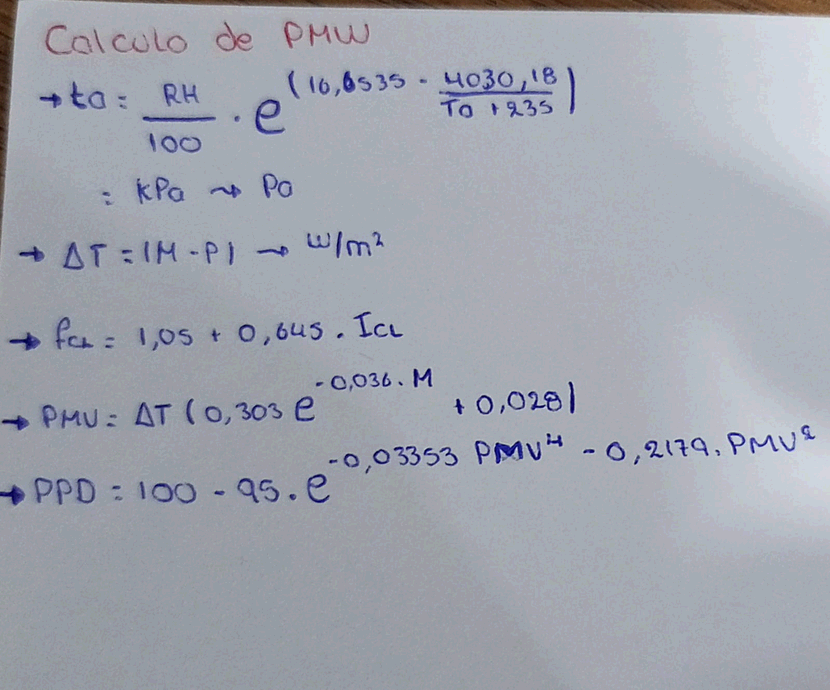 Calculo de PMW
→ ta = RH/100 . e^(16,6535 - 4030,18/(Ta + 235))
= kPa ⇝ Pa
→ ΔT = (M - P) → W/m²
→ fcl = 1,05 + 0,645 . Icl
→ PMV = ΔT (0,303 e^-0,036.M + 0,028)
→ PPD = 100 - 95 . e^-0,03353 PMV⁴ - 0,2179. PMV²